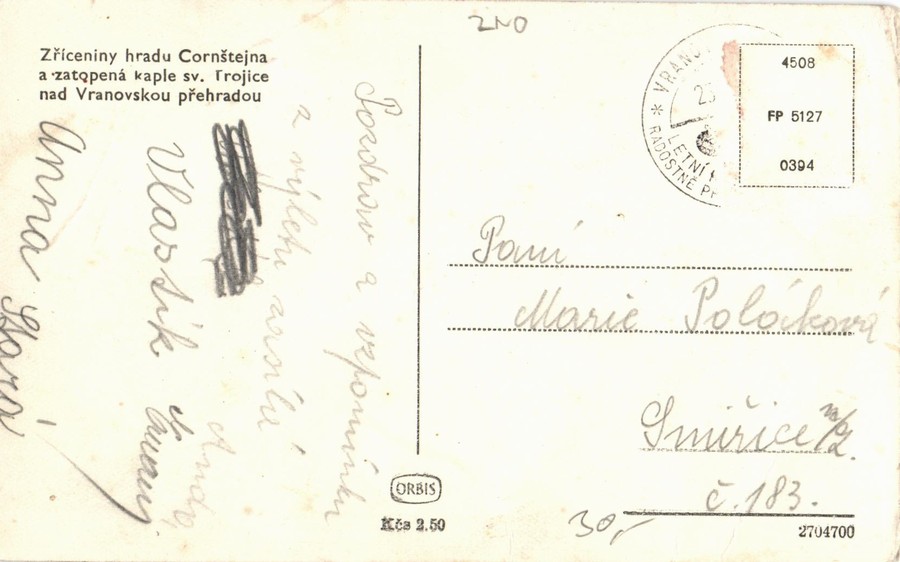 ZNO
Zříceniny hradu Cornštejna
a zatopená kaple sv. Trojice
nad Vranovskou přehradou
Pozdrav a vzpomínku
z výletu zasílá
Vlastík
Anna Stará
VRANOV
23
LETNÍ
RADOSTNĚ
4508
FP 5127
0394
Paní
Marie Poláková
Smiřice n/L.
č. 183.
ORBIS
Kčs 2.50
30,-
2704700